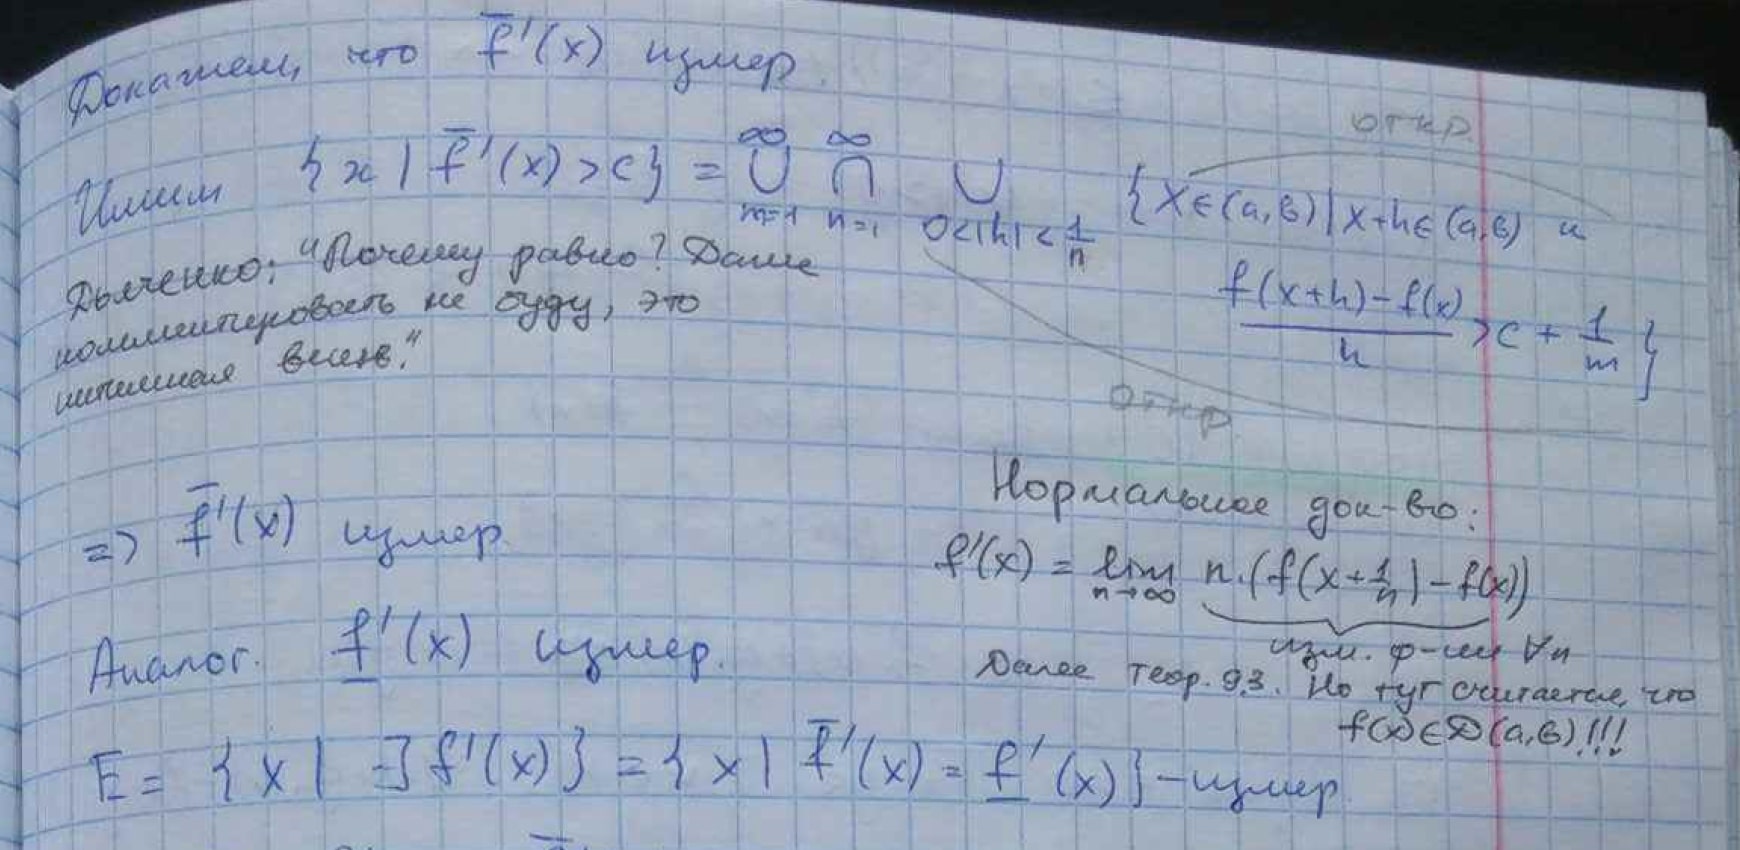 Докажем, что f̅'(x) измер.
откр.
Имеем {x | f̅'(x) > c} = ∞⋃m=1 ∞⋂n=1 ⋃0<|h|<1/n {x∈(a,b) | x+h∈(a,b) и
(f(x+h) - f(x))/h > c + 1/m}
откр
Дьяченко: "Почему равно? Даже
комментировать не буду, это
интимная вещь."
=> f̅'(x) измер.
Нормальное док-во:
f'(x) = lim n→∞ n·(f(x+1/n) - f(x))
изм. ф-ии ∀n
Далее теор. 9.3. Но тут считается, что
f(x)∈D(a,b)!!!
Аналог. f̲'(x) измер.
E = {x | ∃ f'(x)} = {x | f̅'(x) = f̲'(x)} - измер.